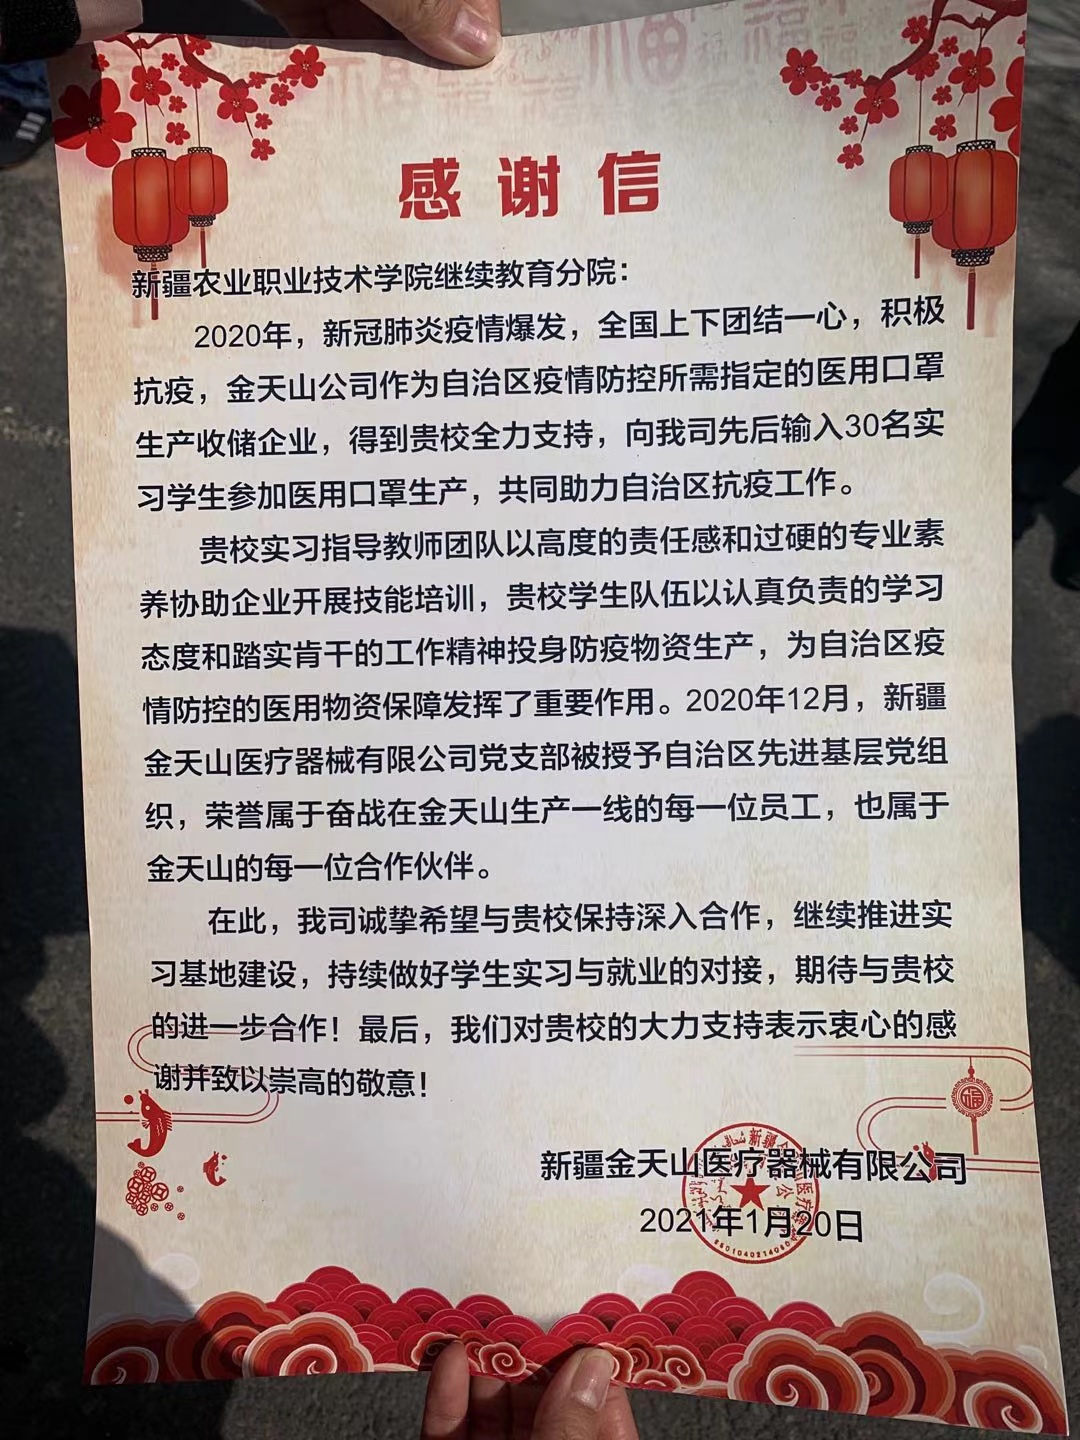 感谢信
新疆农业职业技术学院继续教育分院：
2020年，新冠肺炎疫情爆发，全国上下团结一心，积极
抗疫，金天山公司作为自治区疫情防控所需指定的医用口罩
生产收储企业，得到贵校全力支持，向我司先后输入30名实
习学生参加医用口罩生产，共同助力自治区抗疫工作。
贵校实习指导教师团队以高度的责任感和过硬的专业素
养协助企业开展技能培训，贵校学生队伍以认真负责的学习
态度和踏实肯干的工作精神投身防疫物资生产，为自治区疫
情防控的医用物资保障发挥了重要作用。2020年12月，新疆
金天山医疗器械有限公司党支部被授予自治区先进基层党组
织，荣誉属于奋战在金天山生产一线的每一位员工，也属于
金天山的每一位合作伙伴。
在此，我司诚挚希望与贵校保持深入合作，继续推进实
习基地建设，持续做好学生实习与就业的对接，期待与贵校
的进一步合作！最后，我们对贵校的大力支持表示衷心的感
谢并致以崇高的敬意！
新疆金天山医疗器械有限公司
2021年1月20日